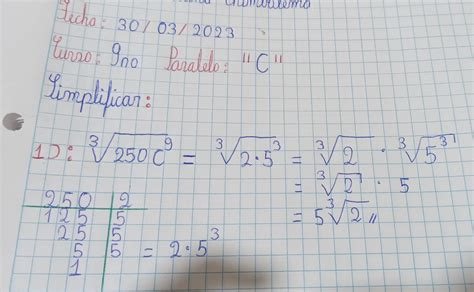 Fecha: 30/03/2023
Curso: 9no Paralelo: "C"
Simplificar:
1): ∛250C⁹ = ∛2·5³ = ∛2 · ∛5³
= ∛2 · 5
= 5∛2 //
250 | 2
125 | 5
25 | 5
5 | 5 = 2·5³
1